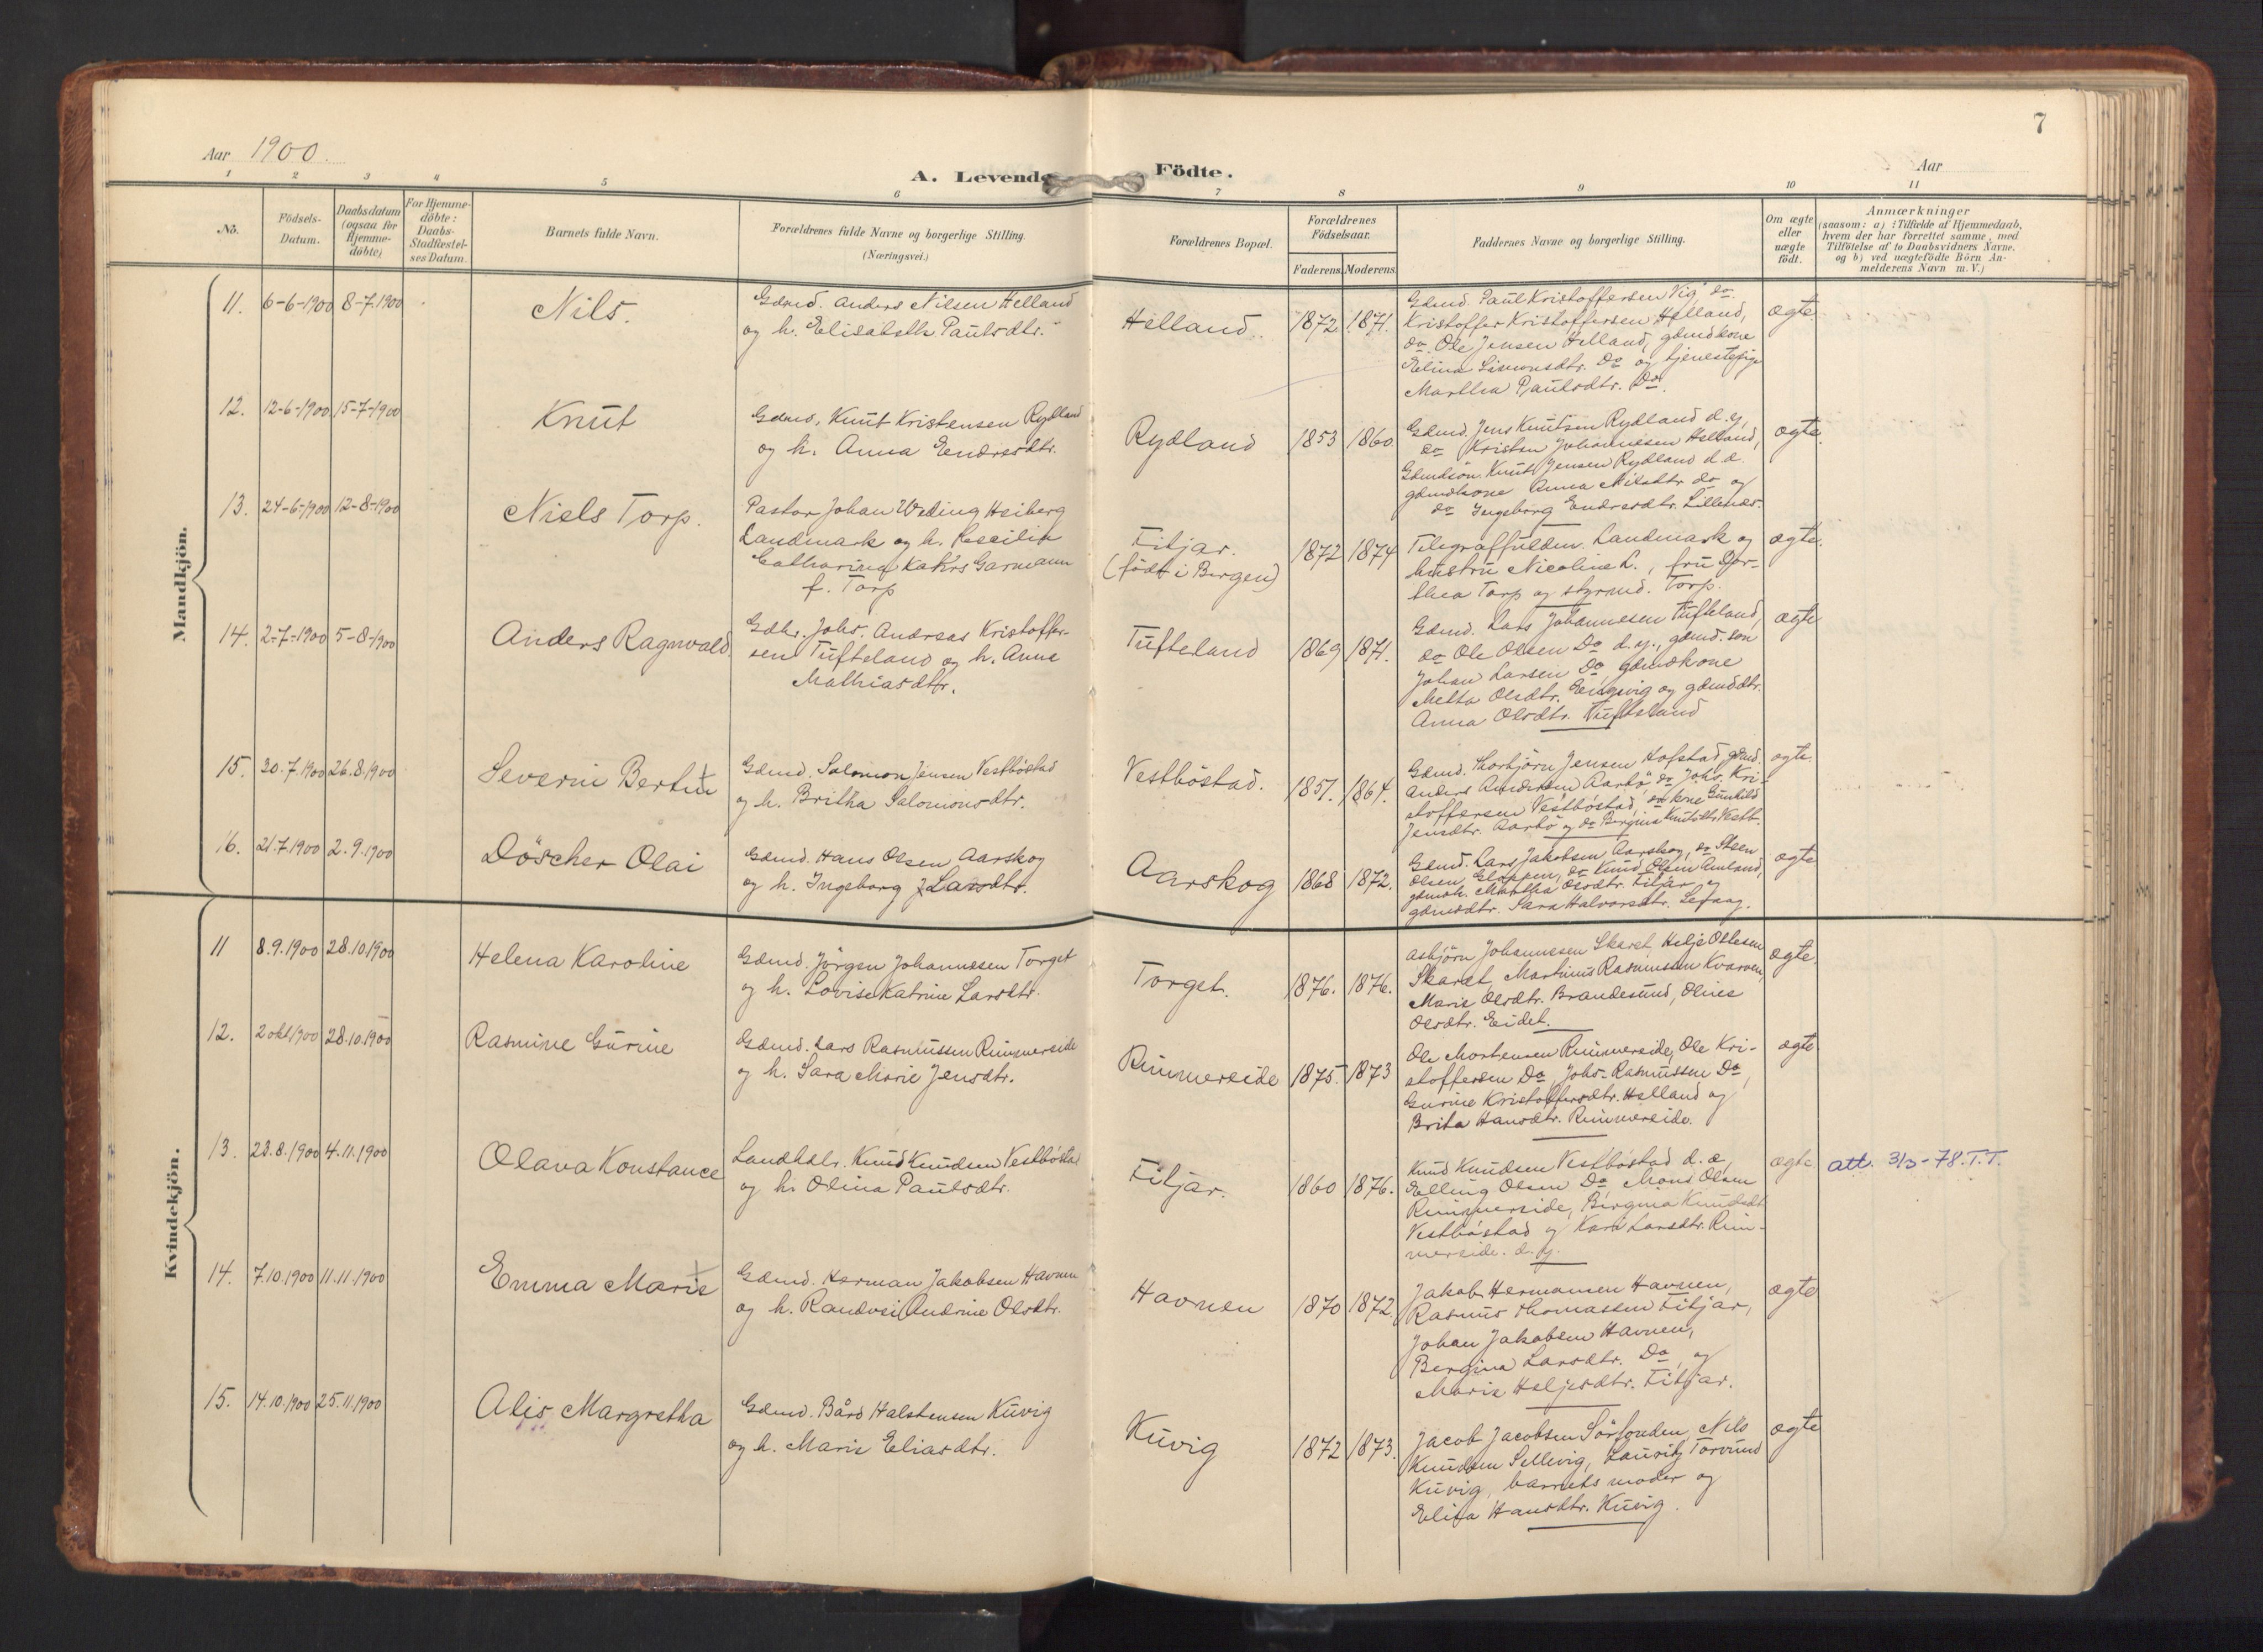 7
Aar 1900.
A. Levende Födte.
Aar
1 2 3 4 5 6 7 8 9 10 11
No.
Födsels-Datum.
Daabsdatum (ogsaa for Hjemme-döbte)
For Hjemme-döbte: Daabs-Stadfæstel-ses Datum.
Barnets fulde Navn.
Forældrenes fulde Navne og borgerlige Stilling.
(Næringsvei.)
Forældrenes Bopæl.
Forældrenes Födselsaar.
Faderens. Moderens.
Faddernes Navne og borgerlige Stilling.
Om ægte eller uægte födt.
Anmærkninger
(saasom: a) i Tilfælde af Hjemmedaab,
hvem der har forrettet samme, med
Tilföielse af to Daabsvidners Navne,
og b) ved uægtefödte Börn An-
melderens Navn m. V.)
Mandkjön.
11. 6-6-1900 8-7-1900
Nils.
Gdmd. Anders Nilsen Helland
og h. Elisabeth Paulsdtr.
Helland. 1872 1871.
Gdmd. Paul Kristoffersen Vig, do
Kristoffer Kristoffersen Helland,
do Ole Jensen Helland, gdmdkone
Elina Simonsdtr. Do og tjenestepige
Martha Paulsdtr. Do.
ægte.
12. 12-6-1900 15-7-1900
Knut
Gdmd. Knut Kristensen Rydland
og h. Anna Endresdtr.
Rydland 1853 1860
Gdmd. Jens Knutsen Rydland d.y,
do Kristen Johannesen Helland,
Gdmdsön Knut Jensen Rydland d.æ.
gdmdkone Anna Nilsdtr do og
do Ingeborg Endresdtr. Lillenæs.
ægte.
13. 24-6-1900 12-8-1900
Niels Torp.
Pastor Johan Weding Heiberg
Landmark og h. Cecilie
Catharina Kahrs Garmann
f. Torp
Fitjar.
(födt i Bergen) 1872 1874
Telegraffuldm. Landmark og
hustru Nicoline L., fru Dor-
thea Torp og styrmd. Torp.
ægte.
14. 2-7-1900 5-8-1900
Anders Ragnvald.
Gdbr. Johs. Andreas Kristoffer-
sen Tufteland og h. Anne
Mathiasdtr.
Tufteland 1869 1871.
Gdmd. Lars Johannesen Tufteland,
do Ole Olsen Do d.y., gdmd.sön
Johan Larsen Do, gdmdkone
Metta Olsdtr. Engevig og gdmddtr.
Anna Olsdtr. Tufteland
ægte
15. 20.7.1900 26.8.1900
Severin Bertin
Gdmd. Salomon Jensen Vestböstad
og h. Britha Salomonsdtr.
Vestböstad. 1857. 1864.
Gdmd. Thorbjörn Jensen Hofstad, gdmd.
Anders Andersen Aarbö, do Johs. Kri-
stoffersen Vestböstad, do kone Gunhild
Jensdtr. Aarbö og do Bergina Knutsdtr Vestb.
ægte.
16. 21.7.1900 2.9.1900
Döscher Olai
Gdmd. Hans Olsen Aarskog
og h. Ingeborg J. Larsdtr.
Aarskog 1868 1872.
Gdmd. Lars Jakobsen Aarskog, do Steen
Olsen Gloppen, do Knud Olsen Amland,
gdmdk. Martha Olsdtr. Fitjar og
gdmddtr. Sara Halvorsdtr.
ægte
Kvindekjön.
11 8.9.1900 28.10.1900
Helena Karoline
Gdmd. Jörgen Johannesen Torget
og h. Lovise Katrine Larsdtr.
Torget. 1876. 1876.
Asbjörn Johannesen Skaret, Helje Ottesen
Skaret, Martinus Rasmussen Kvarven,
Marie Olsdtr. Brandesund, Oline
Olsdtr. Eidet.
ægte.
12. 2 okt 1900 28.10.1900
Rasmine Gurine
Gdmd. Lars Rasmussen Rimmereide
og h. Sara Marie Jensdtr.
Rimmereide 1875. 1873
Ole Mortensen Rimmereide, Ole Kri-
stoffersen Do, Johs. Rasmussen Do,
Gurine Kristoffersdtr. Helland og
Brita Hansdtr. Rimmereide.
ægte
13. 23.8.1900 4.11.1900
Olava Konstance
Landhdlr. Knud Knudsen Vestböstad
og h. Olina Paulsdtr.
Fitjar. 1860 1876.
Knud Knudsen Vestböstad d.æ,
Elling Olsen Do, Mons Olsen
Rimmereide, Bergina Knudsdtr
Vestböstad og Kari Larsdtr. Rim-
mereide d.y.
ægte att. 3/3-78. T.T.
14. 7.10.1900 11.11.1900
Emma Marie
Gdmd. Herman Jakobsen Havnen
og h. Randvei Andrine Olsdtr.
Havnen 1870 1872.
Jakob Hermansen Havnen,
Rasmus Thomassen Fitjar,
Johan Jakobsen Havnen,
Bergina Larsdtr. Do, og
Marie Heljesdtr. Fitjar.
ægte
15. 14.10.1900 25.11.1900
Alis Margretha
Gdmd. Bård Halstensen Kuvig
og h. Marie Eliasdtr.
Kuvig 1872 1873.
Jacob Jacobsen Nils
Knudsen Sellevig, Lauritz Torvund
Kuvig, barnets moder og
Elisa Hansdtr. Kuvig.
ægte